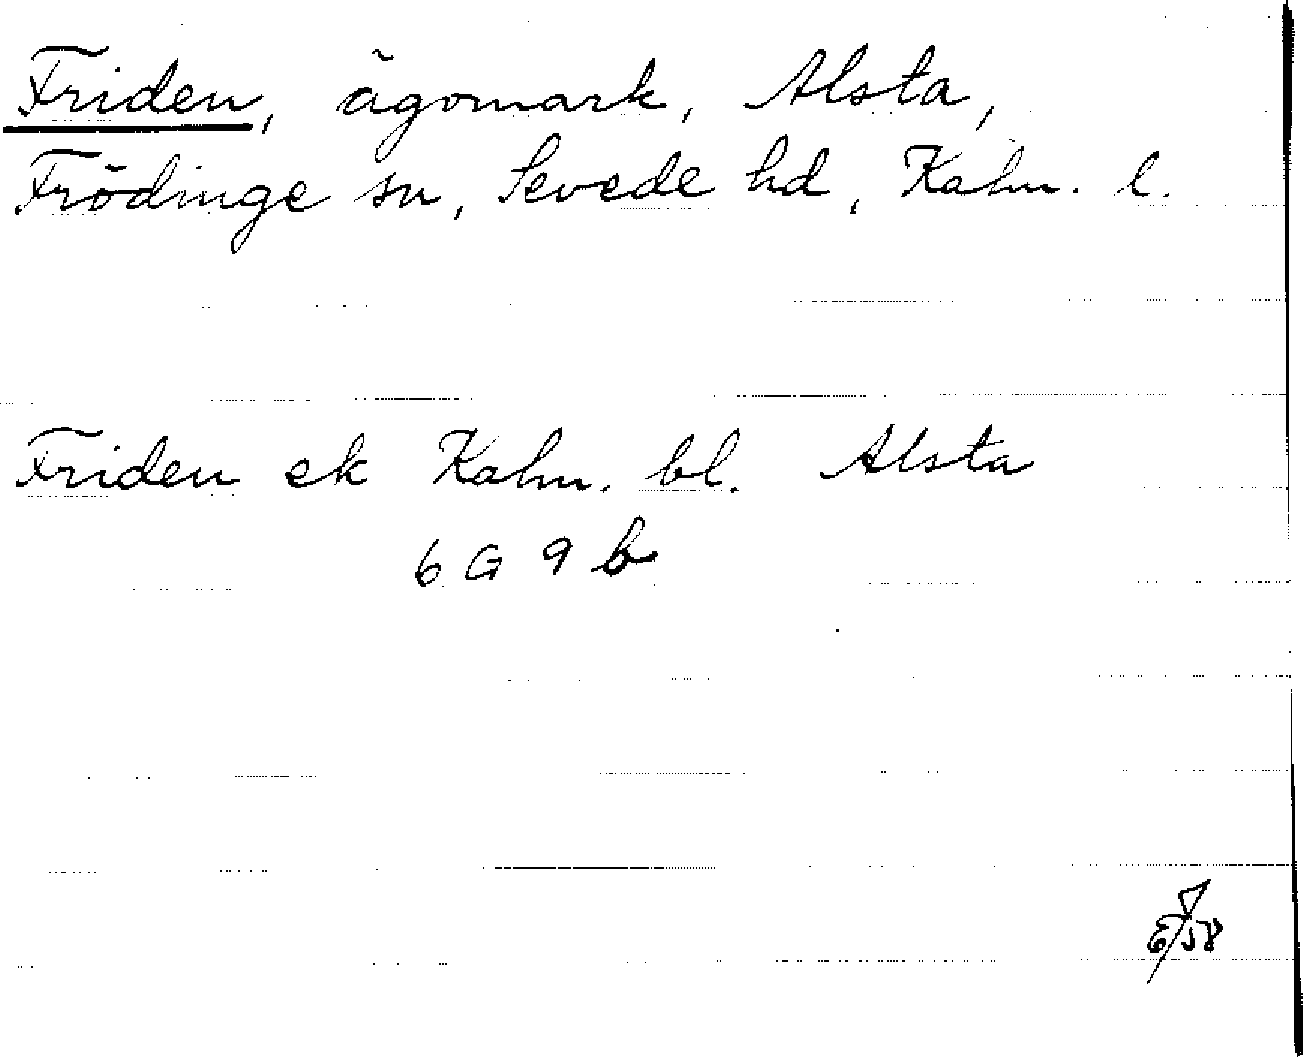 Friden, ägomark, Alsta,
Frödinge sn, Sevede hd, Kalm. l.
Friden ek Kalm. bl. Alsta
6 G 9 b